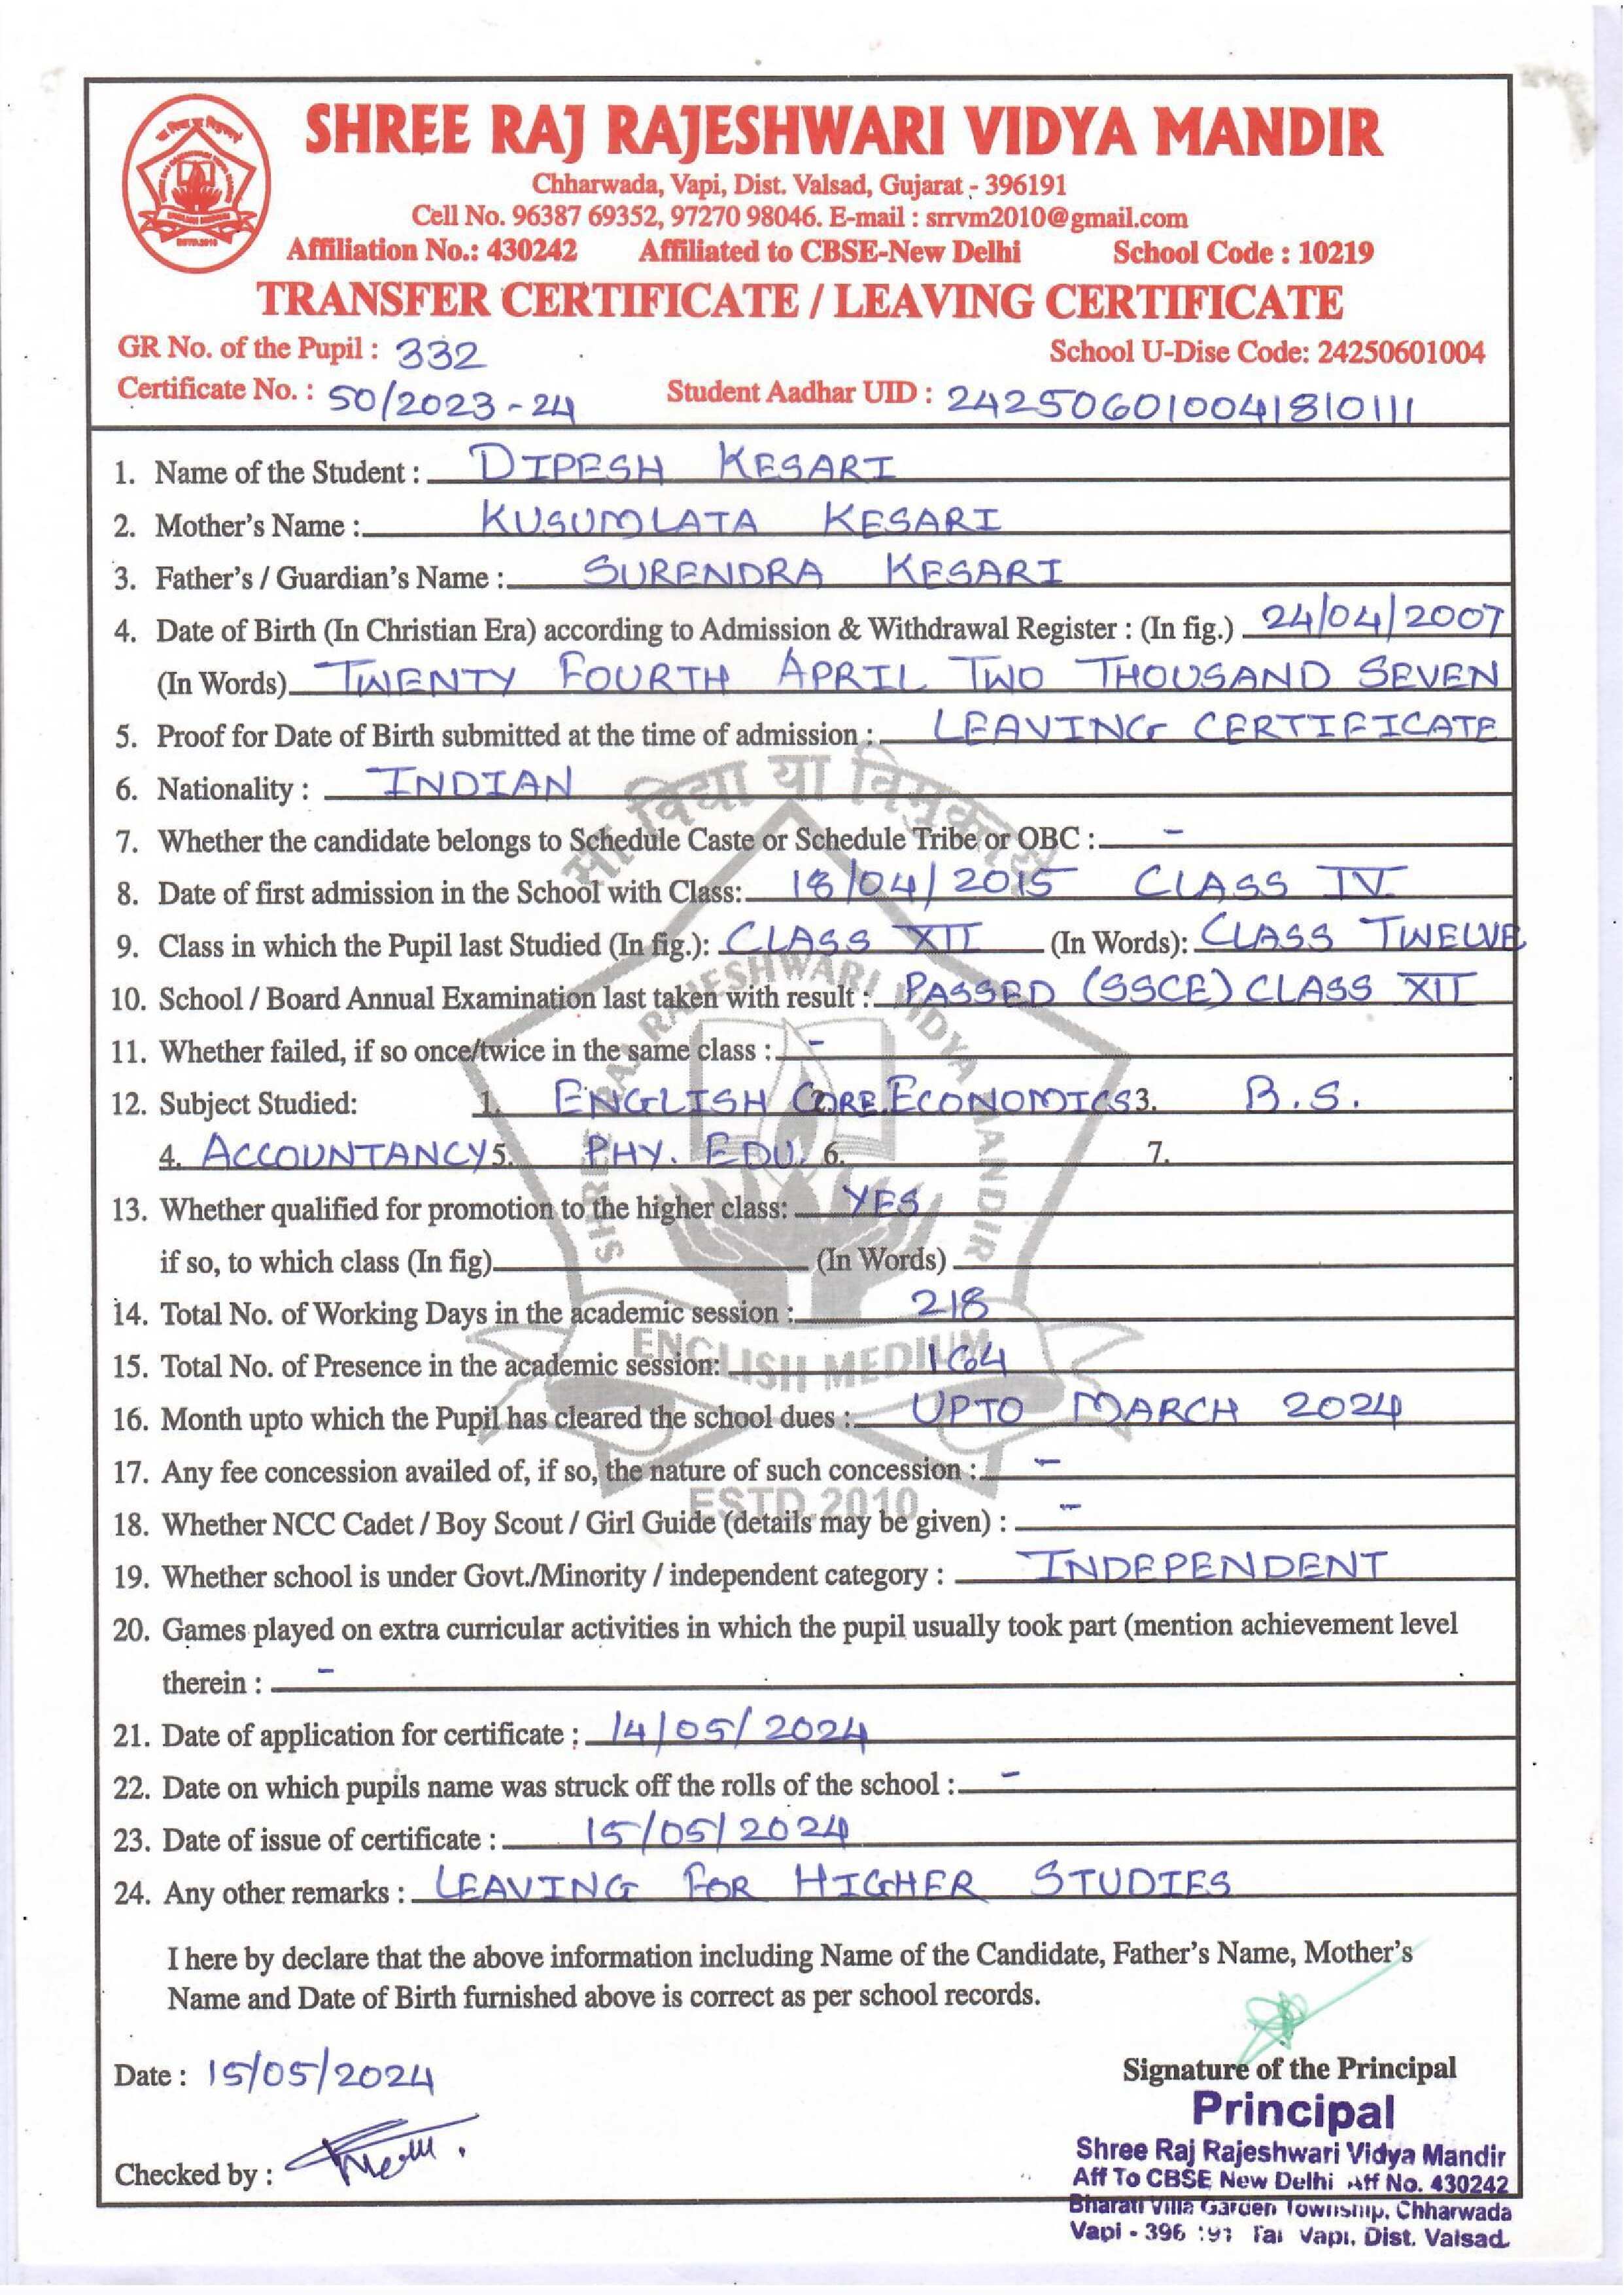 SHREE RAJ RAJESHWARI VIDYA MANDIR
Chharwada, Vapi, Dist. Valsad, Gujarat - 396191
Cell No. 96387 69352, 97270 98046. E-mail : srrvm2010@gmail.com
Affiliation No.: 430242 Affiliated to CBSE-New Delhi School Code : 10219
TRANSFER CERTIFICATE / LEAVING CERTIFICATE
GR No. of the Pupil : 332 School U-Dise Code: 24250601004
Certificate No. : 50/2023-24 Student Aadhar UID : 242506010041810111
1. Name of the Student : DIPESH KESARI
2. Mother's Name : KUSUMLATA KESARI
3. Father's / Guardian's Name : SURENDRA KESARI
4. Date of Birth (In Christian Era) according to Admission & Withdrawal Register : (In fig.) 24/04/2007
(In Words) TWENTY FOURTH APRIL TWO THOUSAND SEVEN
5. Proof for Date of Birth submitted at the time of admission : LEAVING CERTIFICATE
6. Nationality : INDIAN
7. Whether the candidate belongs to Schedule Caste or Schedule Tribe or OBC : -
8. Date of first admission in the School with Class: 18/04/2015 CLASS IV
9. Class in which the Pupil last Studied (In fig.): CLASS XII (In Words): CLASS TWELVE
10. School / Board Annual Examination last taken with result : PASSED (SSCE) CLASS XII
11. Whether failed, if so once/twice in the same class : -
12. Subject Studied: 1. ENGLISH CORE 2. ECONOMICS 3. B.S.
4. ACCOUNTANCY 5. PHY. EDU. 6. 7.
13. Whether qualified for promotion to the higher class: YES
if so, to which class (In fig) (In Words)
14. Total No. of Working Days in the academic session : 218
15. Total No. of Presence in the academic session: 164
16. Month upto which the Pupil has cleared the school dues : UPTO MARCH 2024
17. Any fee concession availed of, if so, the nature of such concession : -
18. Whether NCC Cadet / Boy Scout / Girl Guide (details may be given) : -
19. Whether school is under Govt./Minority / independent category : INDEPENDENT
20. Games played on extra curricular activities in which the pupil usually took part (mention achievement level
therein : -
21. Date of application for certificate : 14/05/2024
22. Date on which pupils name was struck off the rolls of the school : -
23. Date of issue of certificate : 15/05/2024
24. Any other remarks : LEAVING FOR HIGHER STUDIES
I here by declare that the above information including Name of the Candidate, Father's Name, Mother's
Name and Date of Birth furnished above is correct as per school records.
Date : 15/05/2024
Signature of the Principal
Principal
Shree Raj Rajeshwari Vidya Mandir
Checked by :
Aff To CBSE New Delhi Aff No. 430242
Bharati Villa Garden Township, Chharwada
Vapi - 396 191 Tal Vapi, Dist. Valsad.
सा विद्या या विमुक्तये
SHREE RAJ RAJESHWARI VIDYA MANDIR
ENGLISH MEDIUM
ESTD.2010